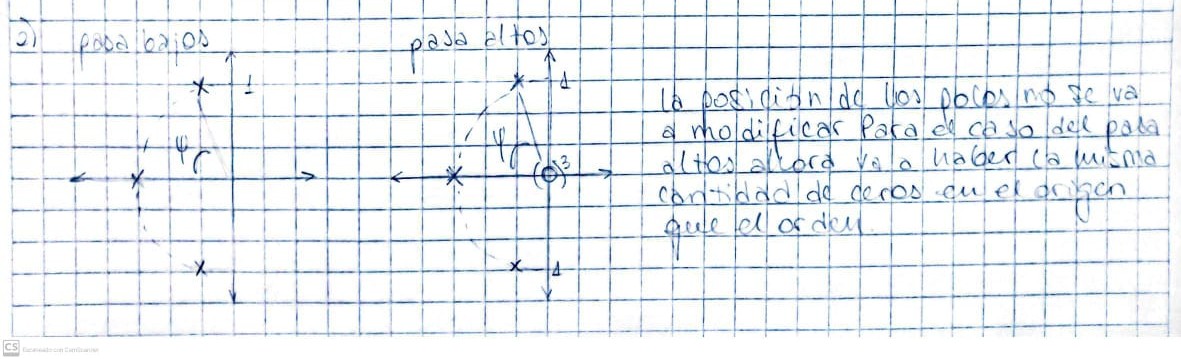 2) pasa bajos
pasa altos
1
1
ψ
ψ
3
1
La posición de los polos no se va
a modificar Para el caso del pasa
altos ahora va a haber la misma
cantidad de ceros en el origen
que el orden.
CS Escaneado con CamScanner